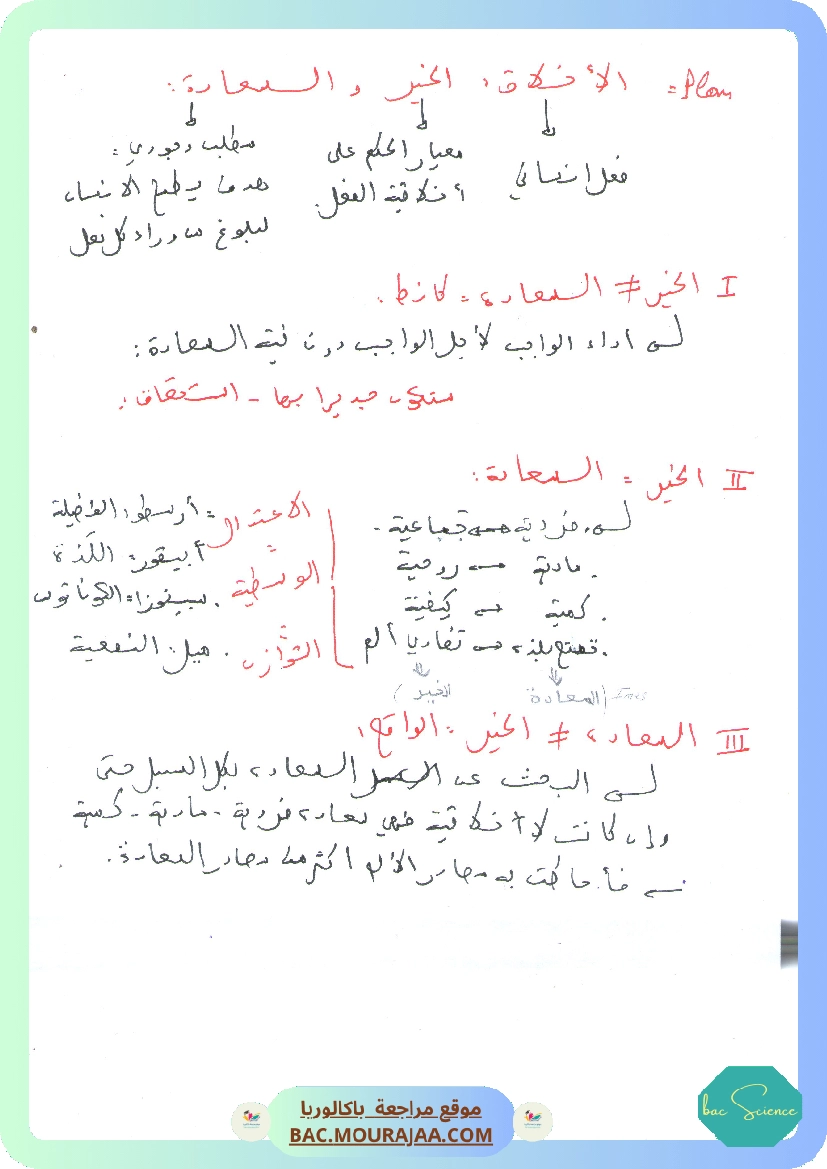 Plan = الأخلاق: الخير و السعادة:
فعل إنساني
معيار الحكم على
أخلاقية الفعل.
مطلب وجودي:
هدف يطمح الإنسان
لبلوغ من وراء كل فعل
I الخير ≠ السعادة: كانط.
أداء الواجب لأجل الواجب دون نية السعادة:
ستكون جديرا بها - استحقاق:
II الخير = السعادة:
فردية ← جماعية -
. مادية ← روحية
. كمية ← كيفية
. تمتع بلذة ← تفادي ألم
السعادة
(الخير
الاعتدال
=
الوسطية
=
التوازن
= أرسطو: الفضيلة
أبيقور: اللذة
. سبينوزا: الكوناتوس
. ميل: النفعية
III السعادة ≠ الخير = الواقع:
البحث عن السعادة بكل السبل حتى
وإن كانت لا أخلاقية فهي سعادة فردية - مادية - كمية
مصادر الألم أكثر من مصادر السعادة.
bac Science
موقع مراجعة باكالوريا
BAC.MOURAJAA.COM